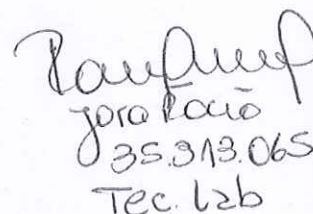 Jora Rocio
35.313.065
Tec. Lab